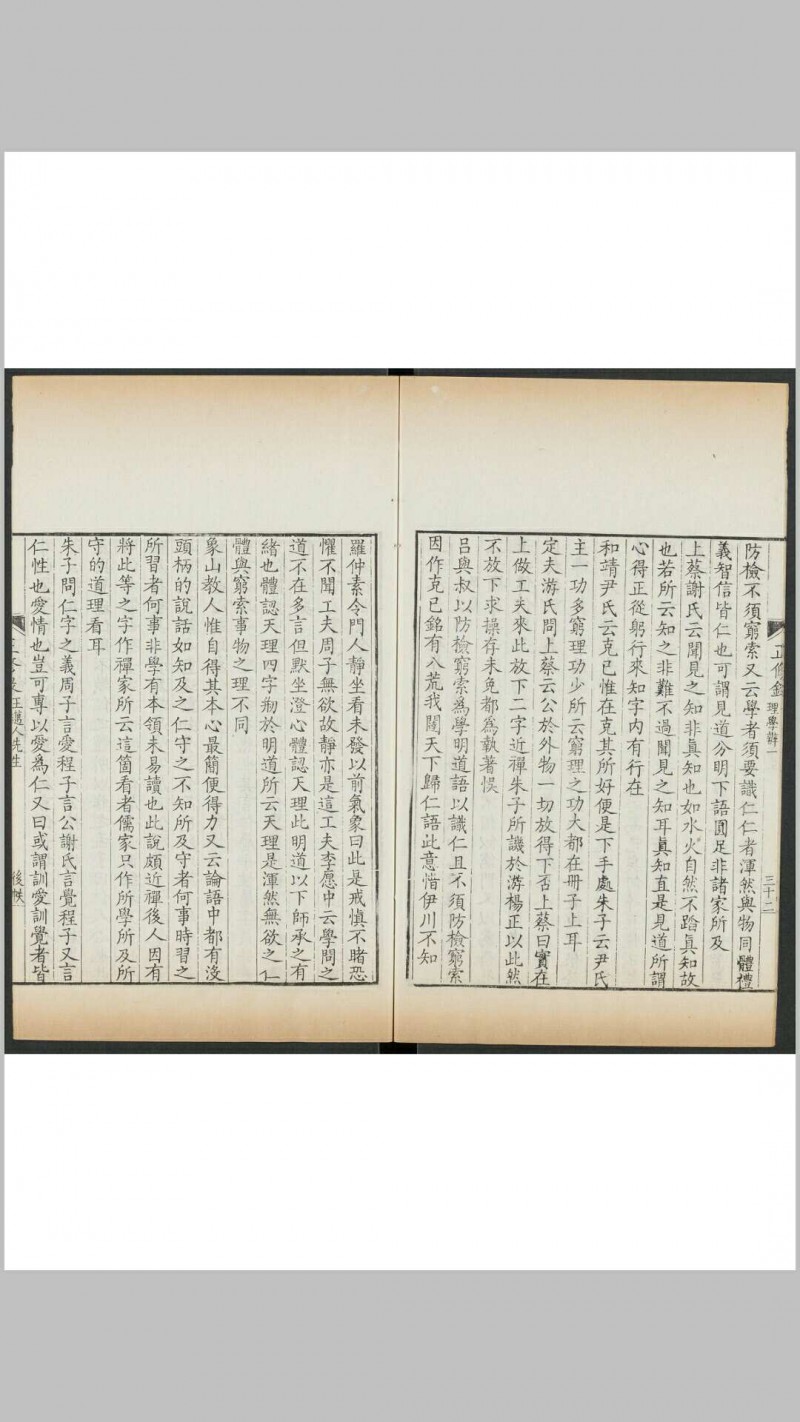 正修錄 理學辯一 三十二
防檢不須窮索又云學者須要識仁仁者渾然與物同體禮
義智信皆仁也可謂見道分明下語圓足非諸家所及
上蔡謝氏云聞見之知非真知也如水火自然不蹈真知故
也若所云知之非難不過聞見之知耳真知直是見道所謂
心得正從躬行來知字內有行在
和靖尹氏云克己惟在克其所好便是下手處朱子云尹氏
主一功多窮理功少所云窮理之功大都在冊子上耳
定夫游氏問上蔡云公於外物一切放得下否上蔡曰實在
上做工夫來此放下二字近禪朱子所譏於游楊正以此然
不放下求操存未免都為執著悞
呂與叔以防檢窮索為學明道語以識仁且不須防檢窮索
因作克己銘有八荒我闥天下歸仁語此意惜伊川不知
羅仲素令門人靜坐看未發以前氣象曰此是戒慎不睹恐
懼不聞工夫周子無欲故靜亦是這工夫李愿中云學問之
道不在多言但默坐澄心體認天理此明道以下師承之有
緒也體認天理四字剏於明道所云天理是渾然無欲之仁
體與窮索事物之理不同
象山教人惟自得其本心最簡便得力又云論語中都有沒
頭柄的說話如知及之仁守之不知所及守者何事時習之
所習者何事非學有本領未易讀也此說頗近禪後人因有
將此等之字作禪家所云這箇看者儒家只作所學所及所
守的道理看耳
朱子問仁字之義周子言愛程子言公謝氏言覺程子又言
仁性也愛情也豈可專以愛為仁又曰或謂訓愛訓覺者皆
王邁人先生 後帙